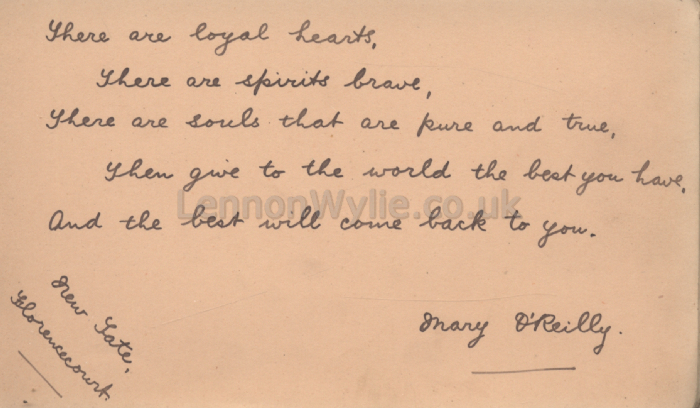 There are loyal hearts,
There are spirits brave,
There are souls that are pure and true,
Then give to the world the best you have,
LennonWylie.co.uk
And the best will come back to you.
New Gate,
Florencecourt.
Mary O'Reilly.